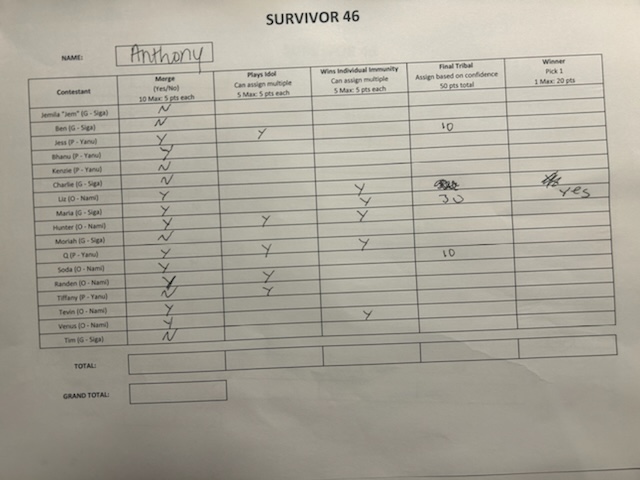 SURVIVOR 46
NAME: Anthony
Contestant Merge (Yes/No) 10 Max: 5 pts each Plays Idol Can assign multiple 5 Max: 5 pts each Wins Individual Immunity Can assign multiple 5 Max: 5 pts each Final Tribal Assign based on confidence 50 pts total Winner Pick 1 1 Max: 20 pts
Jemila "Jem" (G - Siga) N
Ben (G - Siga) N
Jess (P - Yanu) Y Y 10
Bhanu (P - Yanu) Y
Kenzie (P - Yanu) N
Charlie (G - Siga) N
Liz (O - Nami) Y Y
Maria (G - Siga) Y Y 30 Yes
Hunter (O - Nami) Y Y Y
Moriah (G - Siga) N
Q (P - Yanu) Y Y Y
Soda (O - Nami) Y 10
Randen (O - Nami) Y Y
Tiffany (P - Yanu) N Y
Tevin (O - Nami) Y
Venus (O - Nami) Y Y
Tim (G - Siga) N
TOTAL:
GRAND TOTAL: